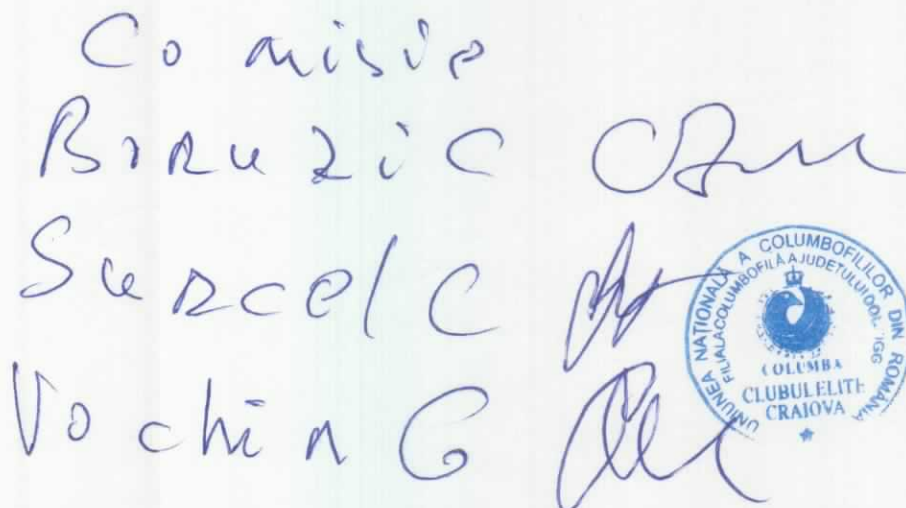 Comisie
Buruzi C
Surcel C
Vochin G
UNIUNEA NAȚIONALĂ A COLUMBOFILILOR DIN ROMÂNIA
FILIALA COLUMBOFILĂ A JUDEȚULUI DOLJ
COLUMBA
CLUBUL ELITE
CRAIOVA